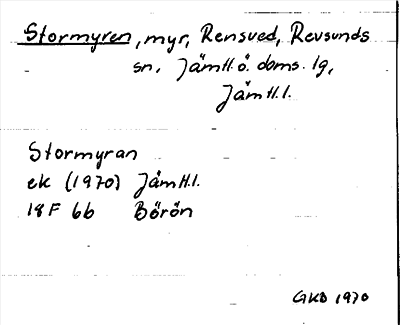 Stormyren, myr, Rensved, Revsunds
sn. Jämtl. ö. doms. lg,
Jämtl. l.
Stormyran
ek (1970) Jämtl. l.
18F 6b Börön
GKB 1970